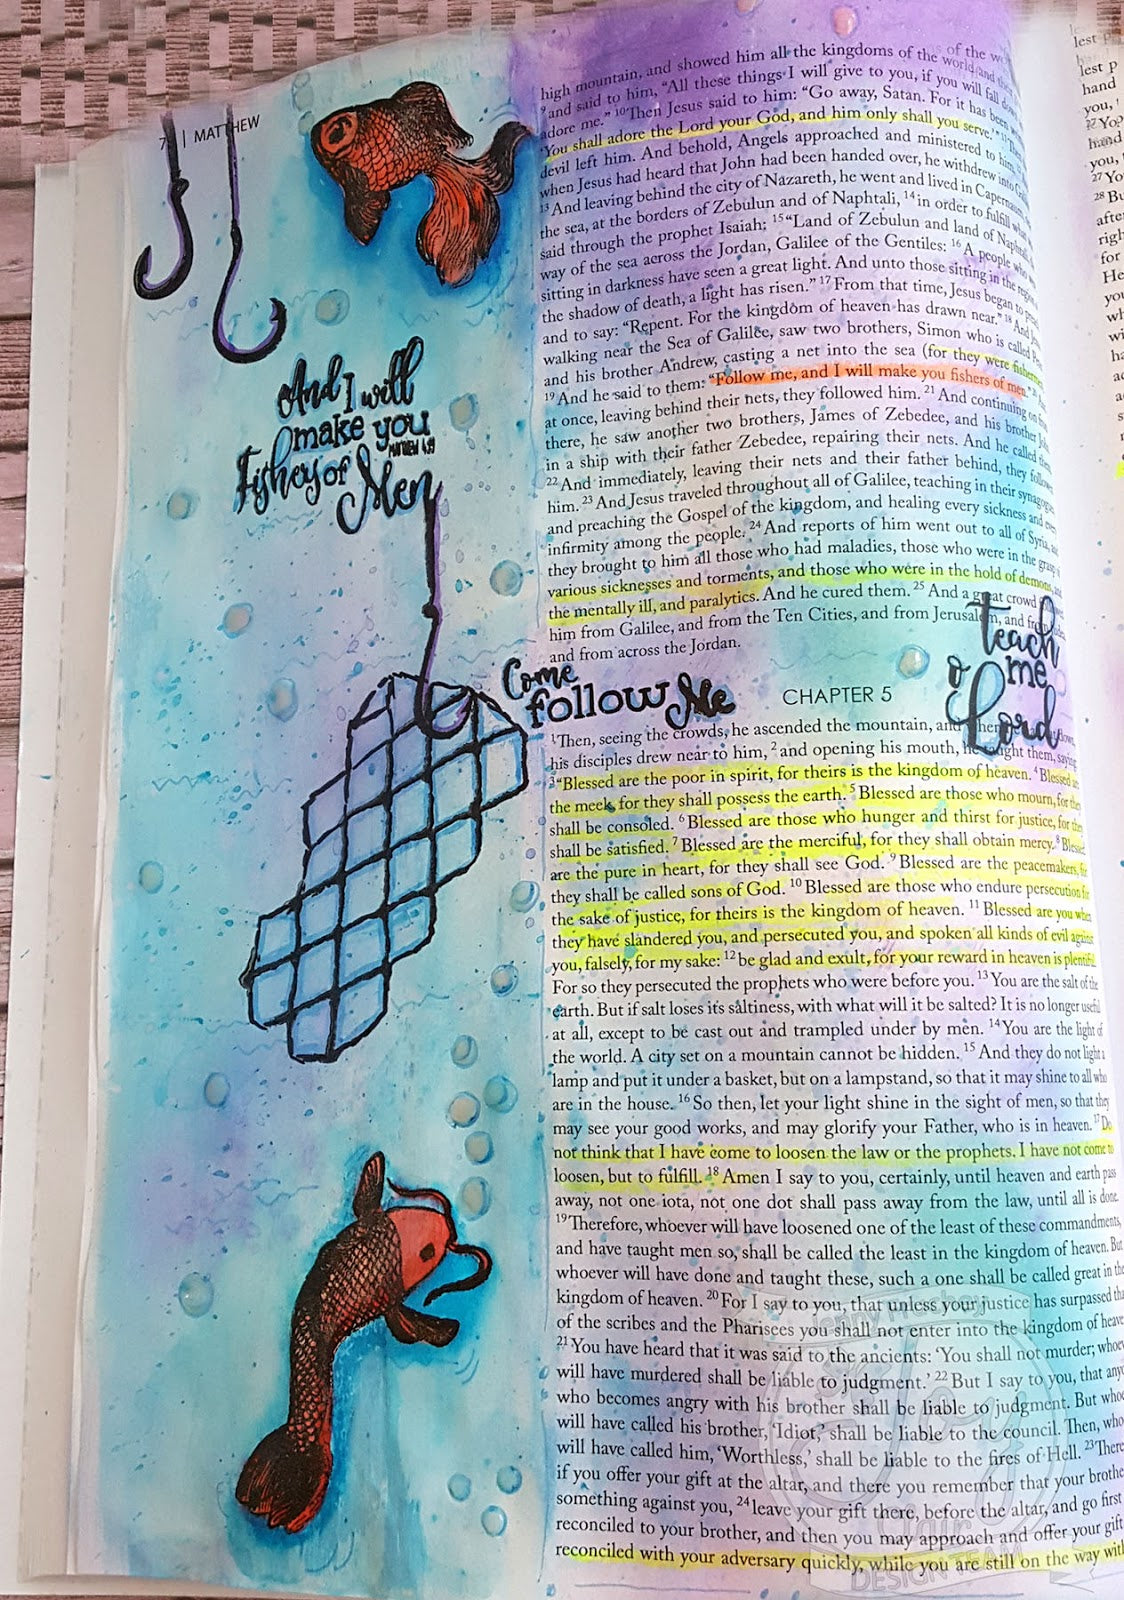 7 | MATTHEW
And I will
make you
MATTHEW 4:19
Fishers of
Men
of the
high mountain, and showed him all the kingdoms of the world and
9 and said to him, “All these things I will give to you, if you will fall down
adore me.” 10 Then Jesus said to him: “Go away, Satan. For it has been
‘You shall adore the Lord your God, and him only shall you serve.’ ” 11
devil left him. And behold, Angels approached and ministered to him.
when Jesus had heard that John had been handed over, he withdrew into
13 And leaving behind the city of Nazareth, he went and lived in Capernaum,
the sea, at the borders of Zebulun and of Naphtali, 14 in order to fulfill what
said through the prophet Isaiah: 15 “Land of Zebulun and land of Naphtali,
way of the sea across the Jordan, Galilee of the Gentiles: 16 A people who
sitting in darkness have seen a great light. And unto those sitting in the region
the shadow of death, a light has risen.” 17 From that time, Jesus began to
and to say: “Repent. For the kingdom of heaven has drawn near.” 18 And
walking near the Sea of Galilee, saw two brothers, Simon who is called
and his brother Andrew, casting a net into the sea (for they were fishermen
19 And he said to them: “Follow me, and I will make you fishers of men.” 20
at once, leaving behind their nets, they followed him. 21 And continuing on
there, he saw another two brothers, James of Zebedee, and his brother John,
in a ship with their father Zebedee, repairing their nets. And he called them.
22 And immediately, leaving their nets and their father behind, they followed
him. 23 And Jesus traveled throughout all of Galilee, teaching in their synagogues,
and preaching the Gospel of the kingdom, and healing every sickness and every
infirmity among the people. 24 And reports of him went out to all of Syria, and
they brought to him all those who had maladies, those who were in the grasp of
various sicknesses and torments, and those who were in the hold of demons, and
the mentally ill, and paralytics. And he cured them. 25 And a great crowd
him from Galilee, and from the Ten Cities, and from Jerusalem, and from
and from across the Jordan.
teach
me
o
Lord
Come
follow Me
CHAPTER 5
1 Then, seeing the crowds, he ascended the mountain, and when down,
his disciples drew near to him, 2 and opening his mouth, he taught them, saying:
3 “Blessed are the poor in spirit, for theirs is the kingdom of heaven. 4 Blessed are
the meek, for they shall possess the earth. 5 Blessed are those who mourn, for they
shall be consoled. 6 Blessed are those who hunger and thirst for justice, for they
shall be satisfied. 7 Blessed are the merciful, for they shall obtain mercy. 8 Blessed
are the pure in heart, for they shall see God. 9 Blessed are the peacemakers, for
they shall be called sons of God. 10 Blessed are those who endure persecution for
the sake of justice, for theirs is the kingdom of heaven. 11 Blessed are you when
they have slandered you, and persecuted you, and spoken all kinds of evil against
you, falsely, for my sake: 12 be glad and exult, for your reward in heaven is plentiful.
For so they persecuted the prophets who were before you. 13 You are the salt of the
earth. But if salt loses its saltiness, with what will it be salted? It is no longer useful
at all, except to be cast out and trampled under by men. 14 You are the light of
the world. A city set on a mountain cannot be hidden. 15 And they do not light a
lamp and put it under a basket, but on a lampstand, so that it may shine to all who
are in the house. 16 So then, let your light shine in the sight of men, so that they
may see your good works, and may glorify your Father, who is in heaven. 17 Do
not think that I have come to loosen the law or the prophets. I have not come to
loosen, but to fulfill. 18 Amen I say to you, certainly, until heaven and earth pass
away, not one iota, not one dot shall pass away from the law, until all is done.
19 Therefore, whoever will have loosened one of the least of these commandments,
and have taught men so, shall be called the least in the kingdom of heaven. But
whoever will have done and taught these, such a one shall be called great in the
kingdom of heaven. 20 For I say to you, that unless your justice has surpassed that
of the scribes and the Pharisees you shall not enter into the kingdom of heave
21 You have heard that it was said to the ancients: ‘You shall not murder; whoev
will have murdered shall be liable to judgment.’ 22 But I say to you, that anyo
who becomes angry with his brother shall be liable to judgment. But who
will have called his brother, ‘Idiot,’ shall be liable to the council. Then, who
will have called him, ‘Worthless,’ shall be liable to the fires of Hell. 23 There
if you offer your gift at the altar, and there you remember that your brothe
something against you, 24 leave your gift there, before the altar, and go first
reconciled to your brother, and then you may approach and offer your gift.
reconciled with your adversary quickly, while you are still on the way with
Joy
Clair
DESIGN TEAM
lest p
hand
you,
27 Yo
28 Bu
after
righ
for
He
you